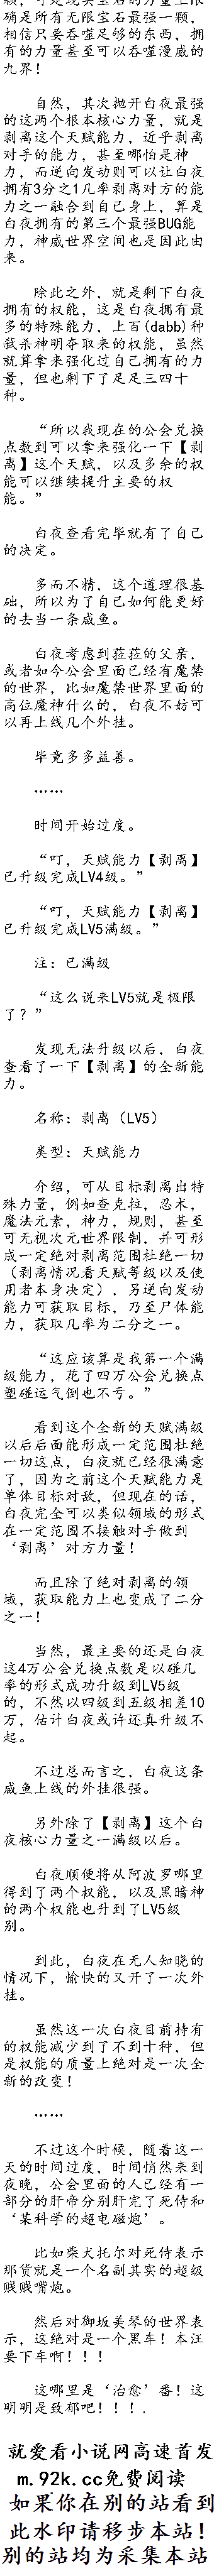 确是所有无限宝石最强一颗，
相信只要吞噬足够的东西，拥
有的力量甚至可以吞噬漫威的
九界！
自然，其次抛开白夜最强
的这两个根本核心力量，就是
剥离这个天赋能力，近乎剥离
对手的能力，甚至哪怕是神
力，而逆向发动则可以让白夜
拥有3分之1几率剥离对方的能
力之一融合到自己身上，算是
白夜拥有的第三个最强BUG能
力，神威世界空间也是因此由
来。
除此之外，就是剩下白夜
拥有的权能，这是白夜拥有最
多的特殊能力，上百(dabb)种
弑杀神明夺取来的权能，虽然
就算拿来强化过自己拥有的力
量，但也剩下了足足三四十
种。
“所以我现在的公会兑换
点数到可以拿来强化一下【剥
离】这个天赋，以及多余的权
能可以继续提升主要的权
能。”
白夜查看完毕就有了自己
的决定。
多而不精，这个道理很基
础，所以为了自己如何能更好
的去当一条咸鱼。
白夜考虑到菈菈的父亲，
或者如今公会里面已经有魔禁
的世界，比如魔禁世界里面的
高位魔神什么的，白夜不妨可
以再上线几个外挂。
毕竟多多益善。
……
时间开始过度。
“叮，天赋能力【剥离】
已升级完成LV4级。”
“叮，天赋能力【剥离】
已升级完成LV5满级。”
注：已满级
“这么说来LV5就是极限
了？”
发现无法升级以后，白夜
查看了一下【剥离】的全新能
力。
名称：剥离（LV5）
类型：天赋能力
介绍，可从目标剥离出特
殊力量，例如查克拉，忍术，
魔法元素，神力，规则，甚至
可无视次元世界限制，并可形
成一定绝对剥离范围杜绝一切
（剥离情况看天赋等级以及使
用者本身决定），另逆向发动
能力可获取目标，乃至尸体能
力，获取几率为二分之一。
“这应该算是我第一个满
级能力，花了四万公会兑换点
塑碰运气倒也不亏。”
看到这个全新的天赋满级
以后后面能形成一定范围杜绝
一切这点，白夜就已经很满意
了，因为之前这个天赋能力是
单体目标对敌，但现在的话，
白夜完全可以类似领域的形式
在一定范围不接触对手做到
‘剥离’对方力量！
而且除了绝对剥离的领
域，获取能力上也变成了二分
之一！
当然，最主要的还是白夜
这4万公会兑换点数是以碰几
率的形式成功升级到LV5级
的，不然以四级到五级相差10
万，估计白夜或许还真升级不
起。
不过总而言之，白夜这条
咸鱼上线的外挂很强。
另外除了【剥离】这个白
夜核心力量之一满级以后。
白夜顺便将从阿波罗哪里
得到了两个权能，以及黑暗神
的两个权能也升到了LV5级
别。
到此，白夜在无人知晓的
情况下，愉快的又开了一次外
挂。
虽然这一次白夜目前持有
的权能减少到了不到十种，但
是权能的质量上绝对是一次全
新的改变！
……
不过这个时候，随着这一
天的时间过度，时间悄然来到
夜晚，公会里面的人已经有一
部分的肝帝分别肝完了死侍和
‘某科学的超电磁炮’。
比如柴犬托尔对死侍表示
那货就是一个名副其实的超级
贱贱嘴炮。
然后对御坂美琴的世界表
示，这绝对是一个黑车！本汪
要下车啊！！！
这哪里是‘治愈’番！这
明明是致郁吧！！！.
就爱看小说网高速首发
m.92k.cc免费阅读
如果你在别的站看到
此水印请移步本站！
别的站均为采集本站